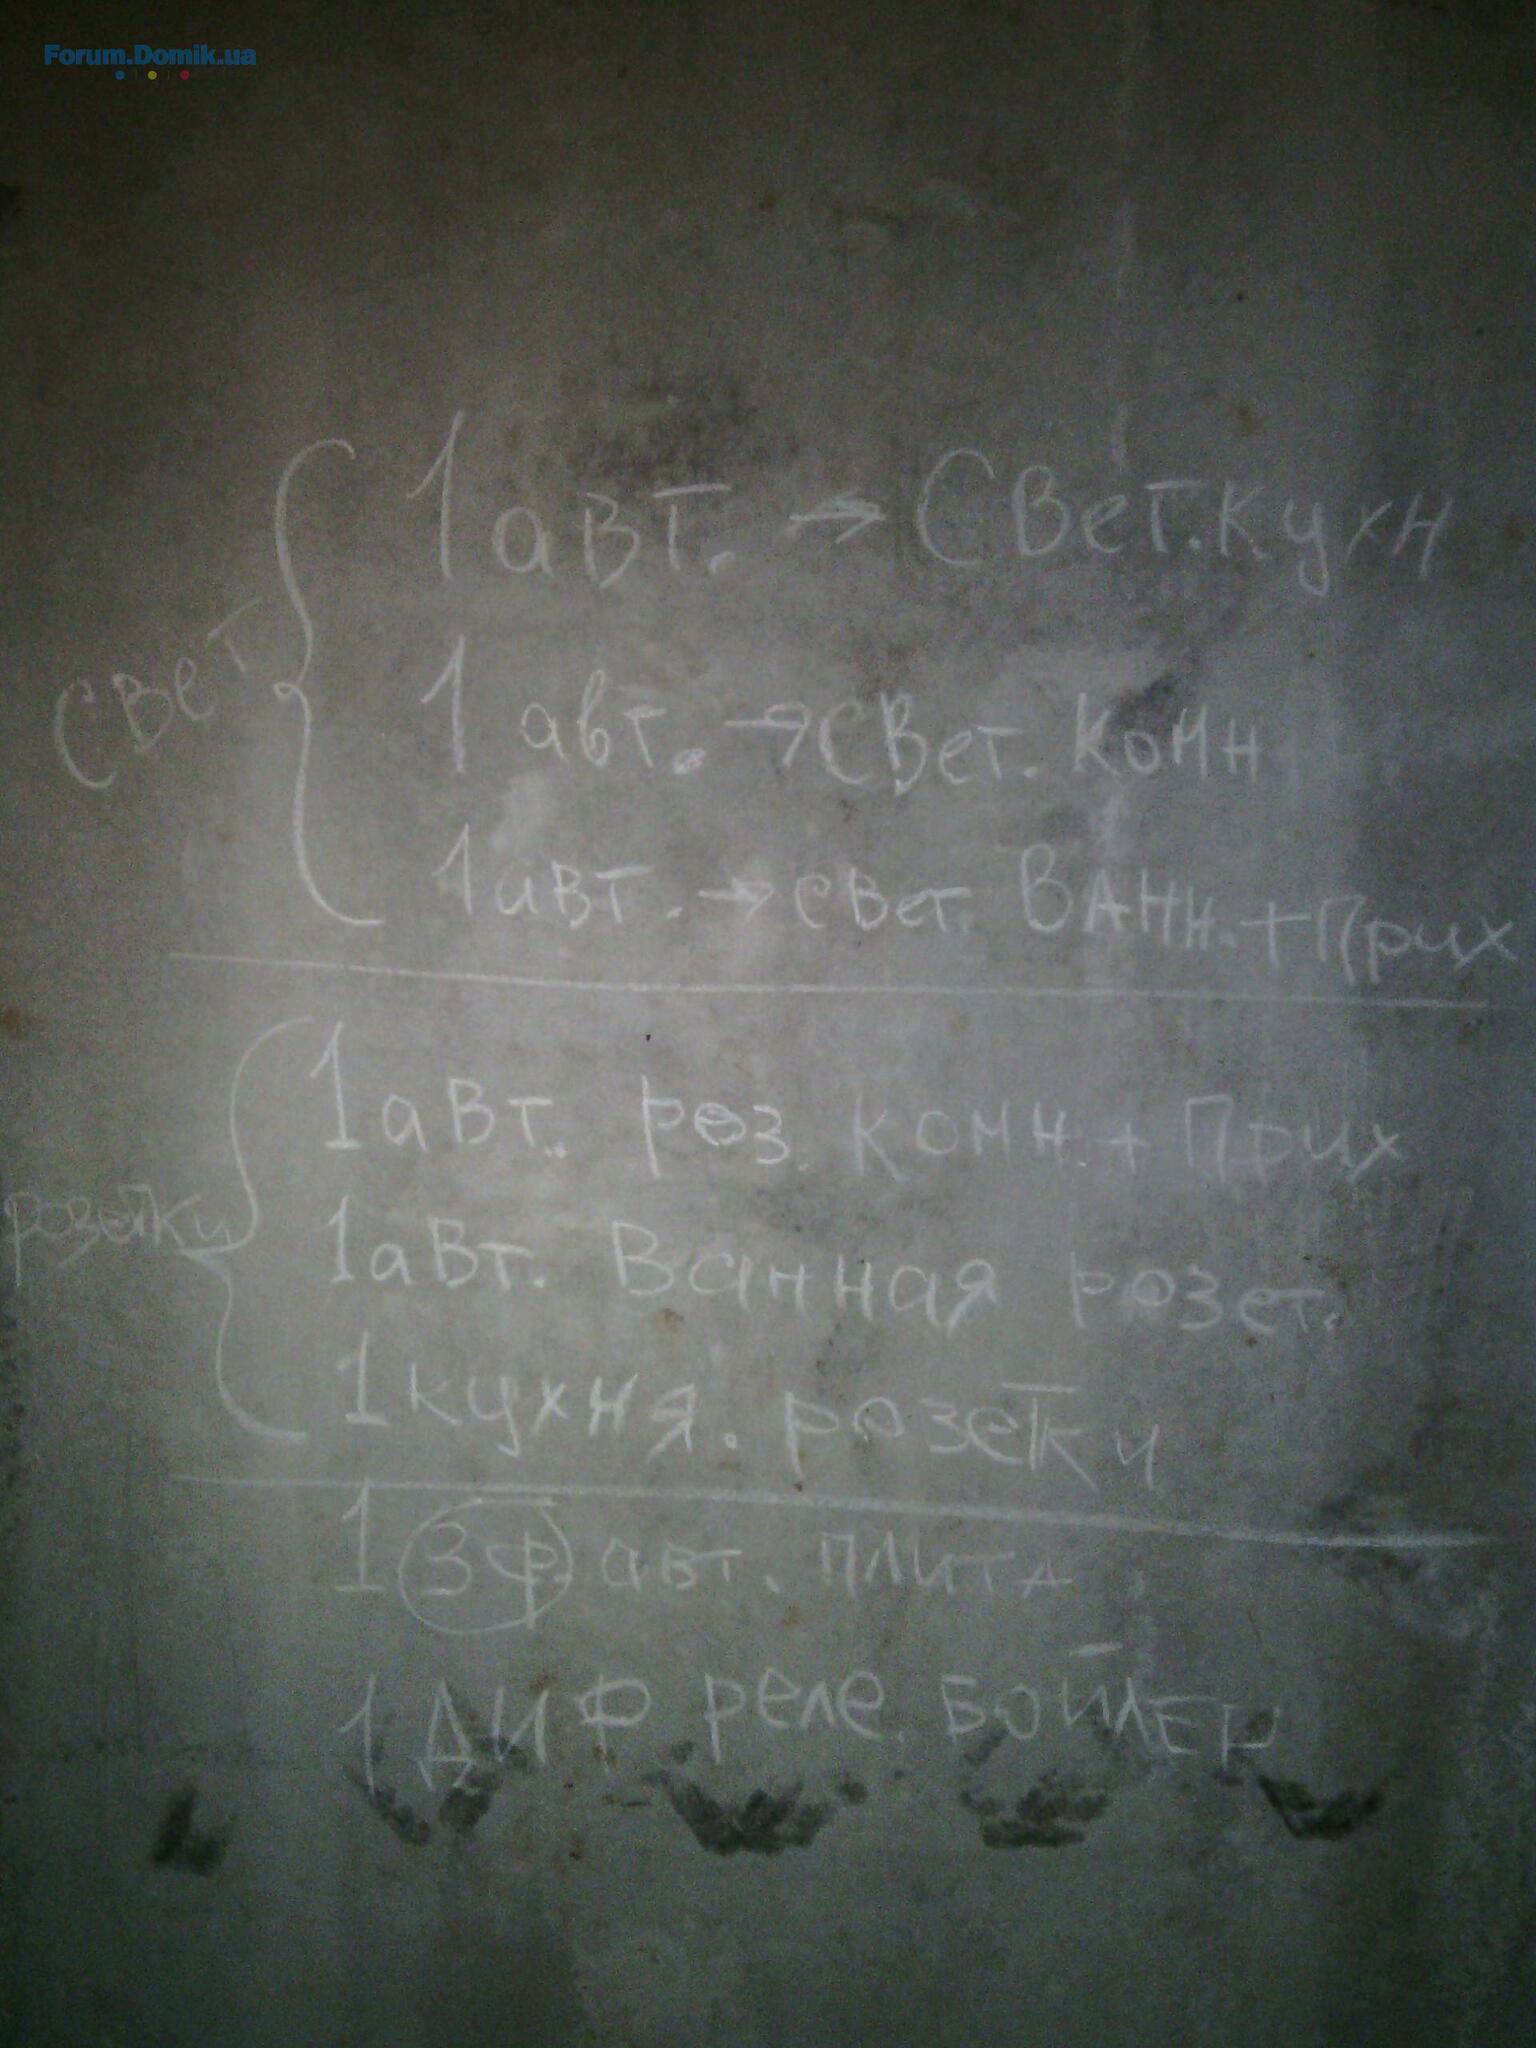 Forum.Domik.ua
Свет
1 авт. → Свет. кухн
1 авт. → Свет. комн
1 авт. → свет. Ванн. + Прих
розетки
1 авт. роз. комн. + Прих
1 авт. Ванная розет.
1 кухня. розетки
1 3ф авт. плита
1 ДИФ реле. БОЙЛЕР